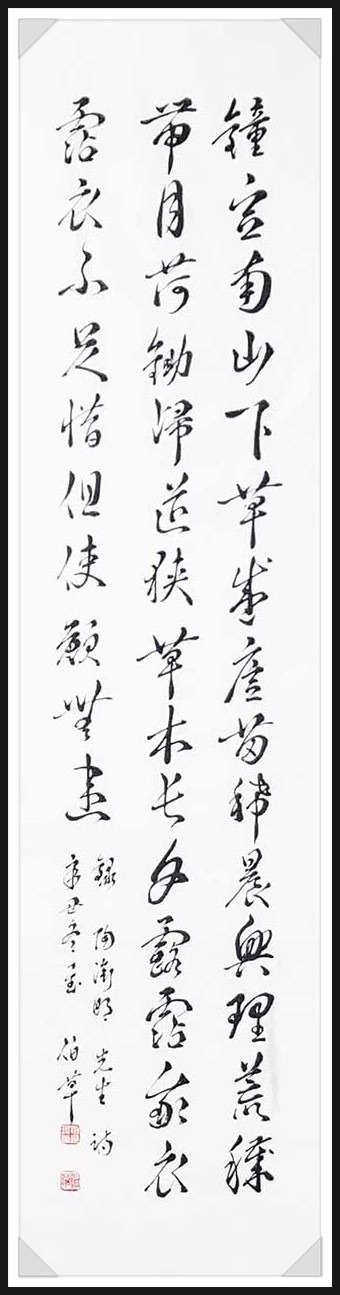 鐘豆南山下草盛豆苗稀晨興理荒穢
帶月荷鋤歸道狹草木長夕露霑我衣
霑衣不足惜但使願無違
錄陶淵明先生詩
辛丑冬至 伯